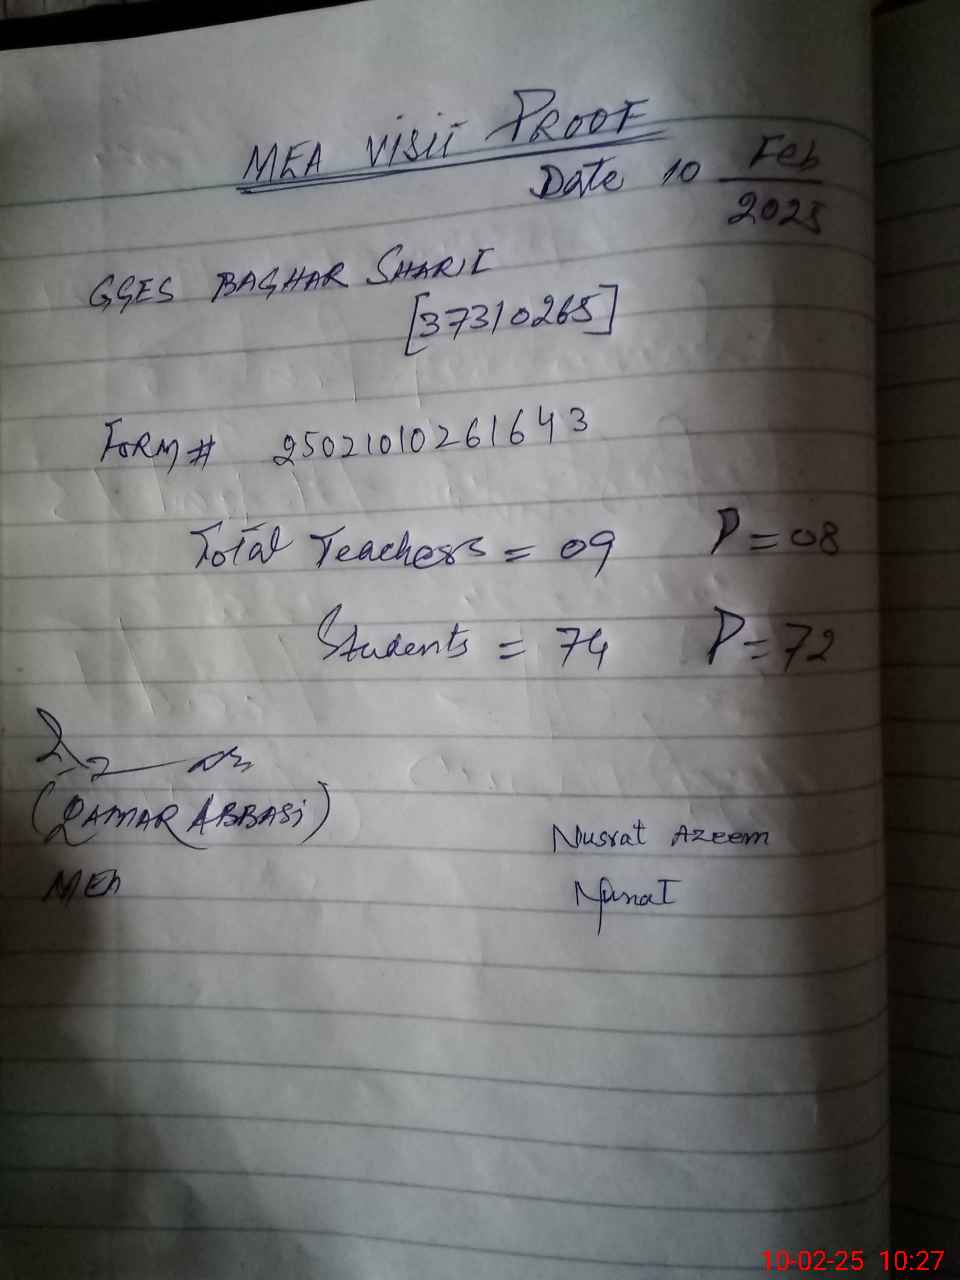 MEA VISIT PROOF
Date 10 Feb
2025
GGES BAGHAR SHARIF
[37310265]
FORM# 25021010261643
Total Teachers = 09 P = 08
Students = 74 P = 72
(QAMAR ABBASI)
MEA
Nusrat Azeem
10-02-25 10:27